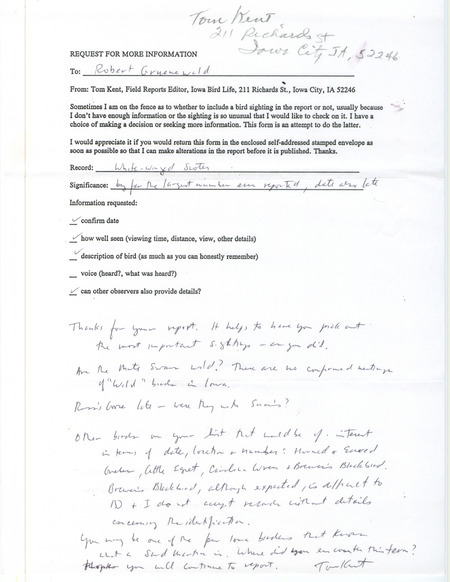 Tom Kent
211 Richards St
Iowa City IA, 52246
REQUEST FOR MORE INFORMATION
To: Robert Gruenewald
From: Tom Kent, Field Reports Editor, Iowa Bird Life, 211 Richards St., Iowa City, IA 52246
Sometimes I am on the fence as to whether to include a bird sighting in the report or not, usually because
I don't have enough information or the sighting is so unusual that I would like to check on it. I have a
choice of making a decision or seeking more information. This form is an attempt to do the latter.
I would appreciate it if you would return this form in the enclosed self-addressed stamped envelope as
soon as possible so that I can make alterations in the report before it is published. Thanks.
Record: White-winged Scoter
Significance: by far the largest number ever reported, date also late
Information requested:
✓ confirm date
✓ how well seen (viewing time, distance, view, other details)
✓ description of bird (as much as you can honestly remember)
__ voice (heard?, what was heard?)
✓ can other observers also provide details?
Thanks for your report. It helps to have you pick out
the most important sightings - as you did.
Are the Mute Swans wild? There are no confirmed nestings
of "wild" birds in Iowa.
Ross's Goose late - were they with Snows?
Other birds on your list that would be of interest
in terms of date, location & number: Horned & Eared
Grebes, Little Egret, Carolina Wren & Brewer's Blackbird.
Brewer's Blackbird, although expected, is difficult to
ID & I do not accept records without details
concerning the identification.
You may be one of the few Iowa birders that knows
what a Sand Martin is. Where did you encounter this term?
you will continue to report. Tom Kent